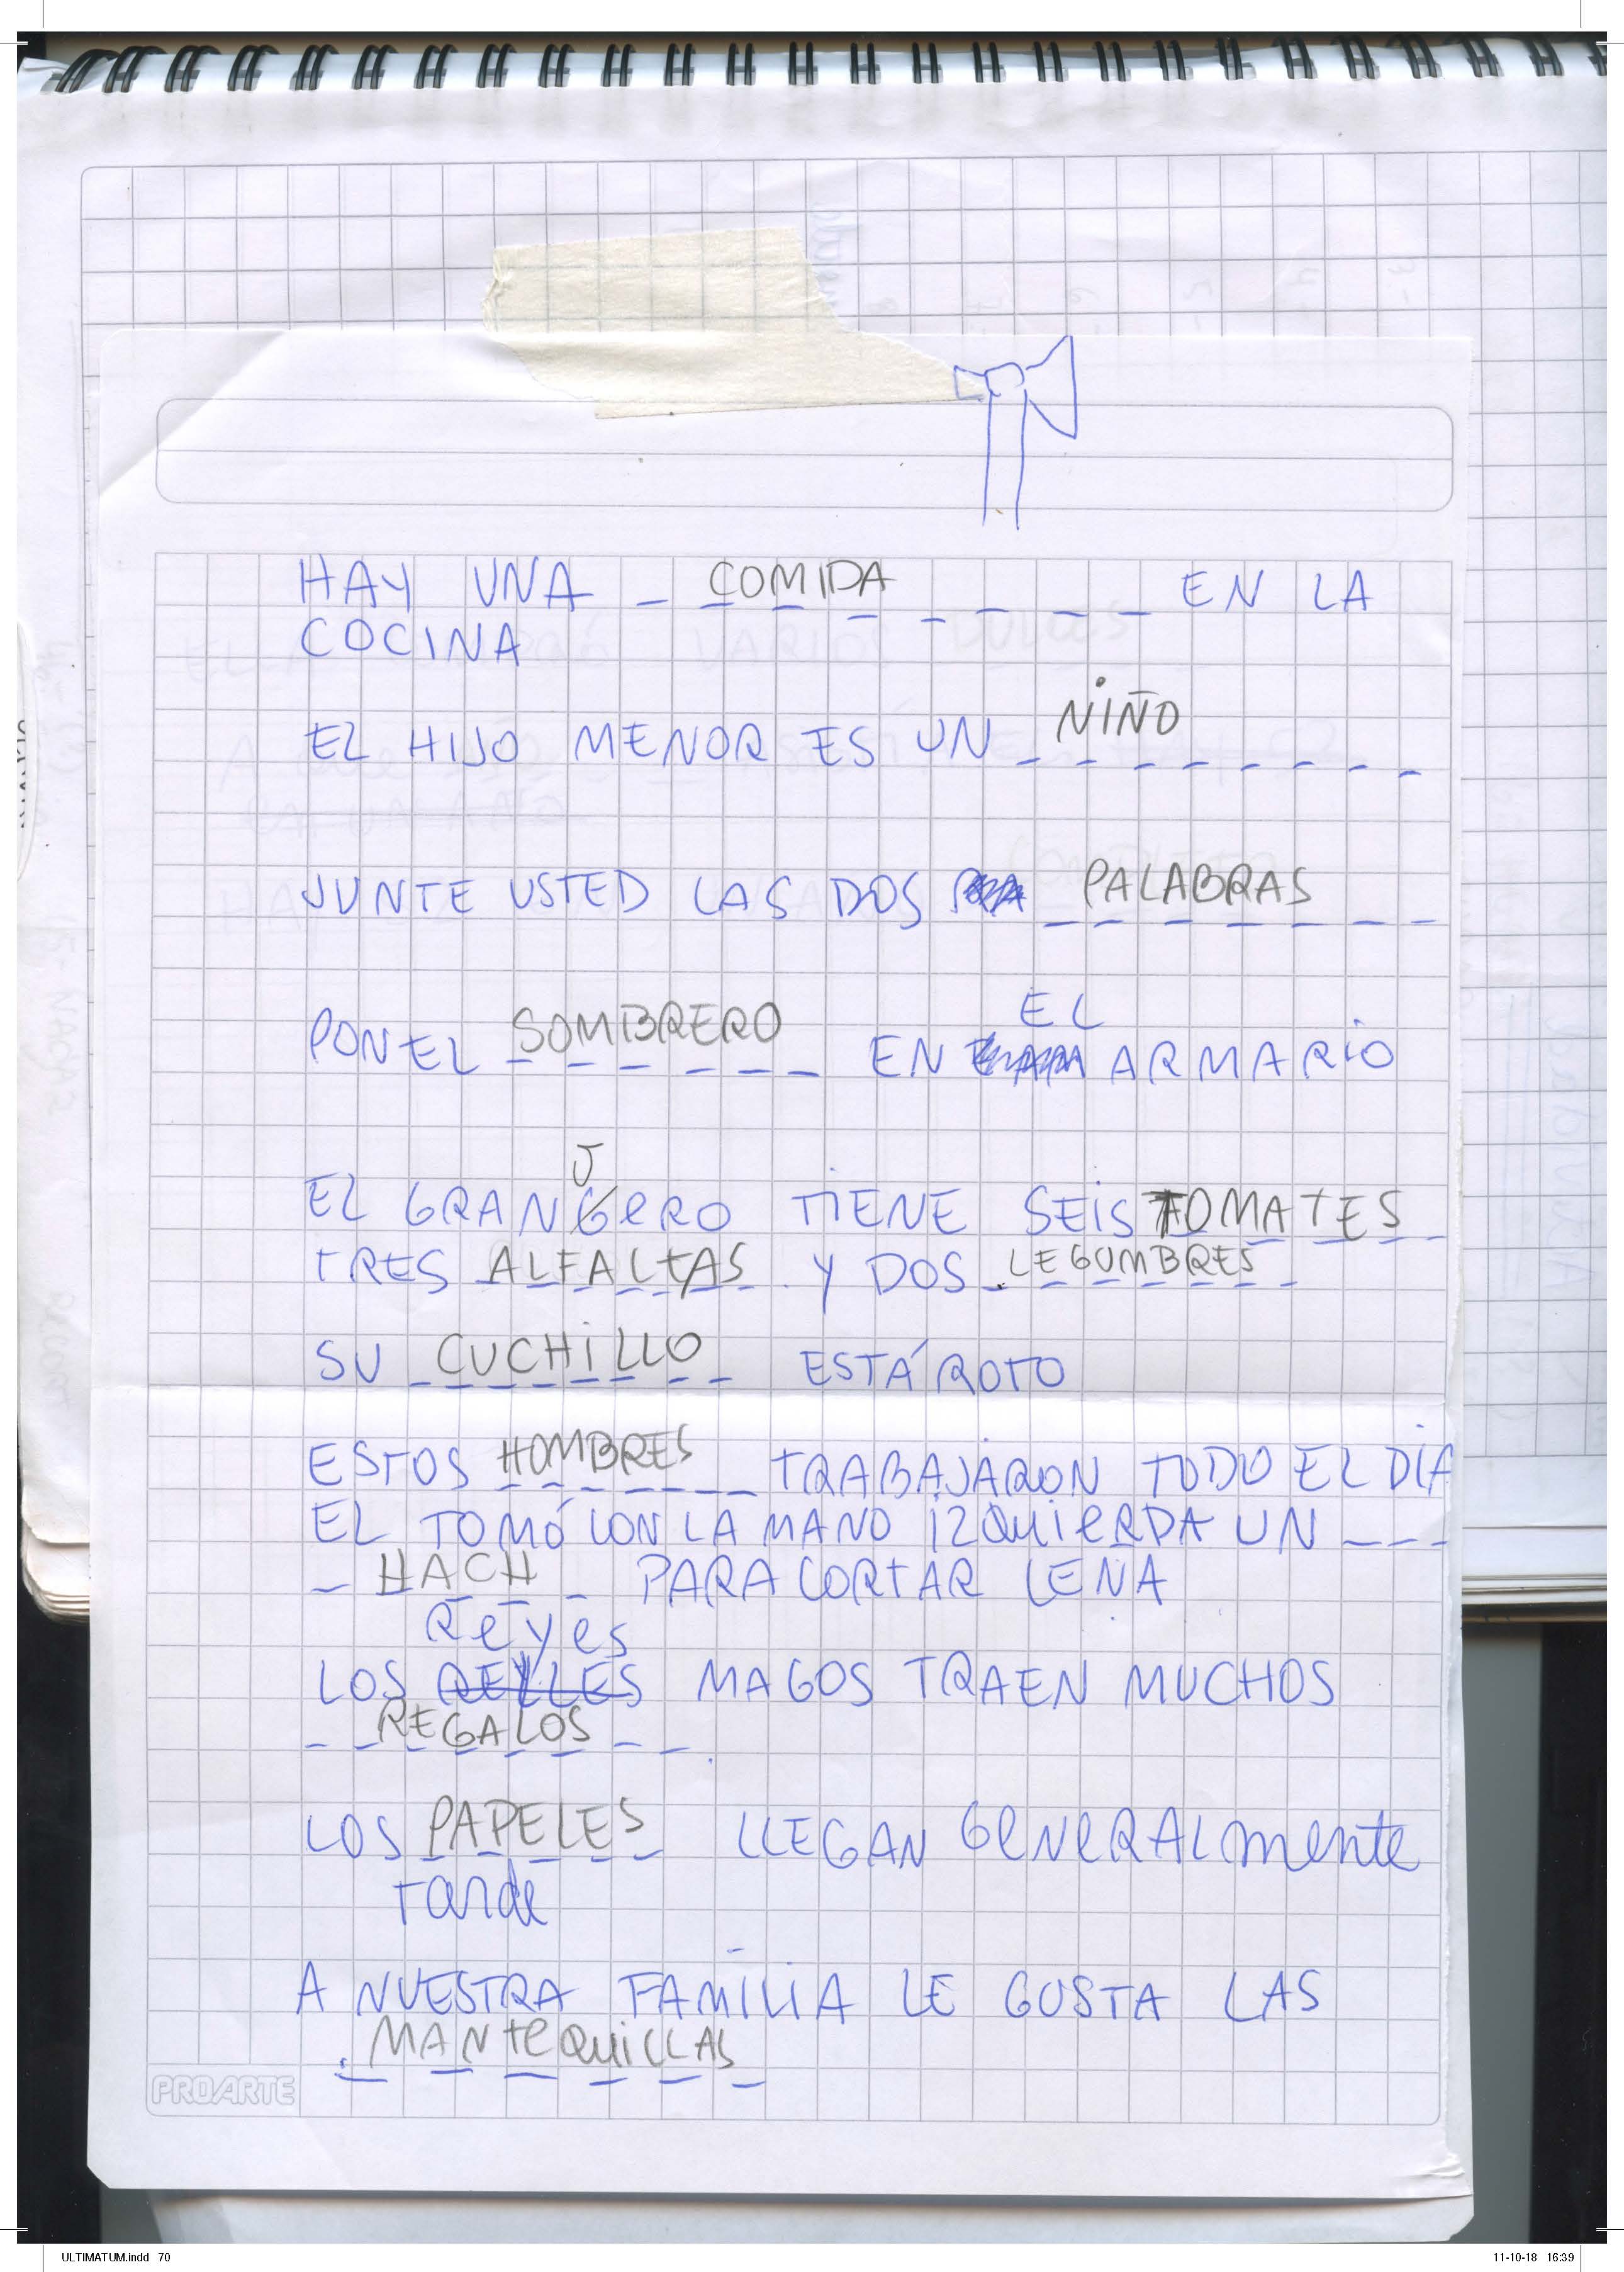 HAY UNA _ COMIDA _ _ _ EN LA
COCINA
EL HIJO MENOR ES UN NIÑO
JUNTE USTED LAS DOS PALABRAS
EL
PON EL SOMBRERO EN ARMARIO
J
EL GRANGERO TIENE SEIS TOMATES
TRES ALFALTAS Y DOS LEGUMBRES
SU CUCHILLO ESTÁ ROTO
ESTOS HOMBRES TRABAJARON TODO EL DÍA
EL TOMÓ CON LA MANO IZQUIERDA UN _ _ _
_ HACH _ PARA CORTAR LEÑA
Reyes
LOS REYLLES MAGOS TRAEN MUCHOS
REGALOS
LOS PAPELES LLEGAN GENERALmente
Tarde
A NUESTRA FAMILIA LE GUSTA LAS
MANTEQUILLAS
PROARTE
ULTIMATUM.indd 70
11-10-18 16:39